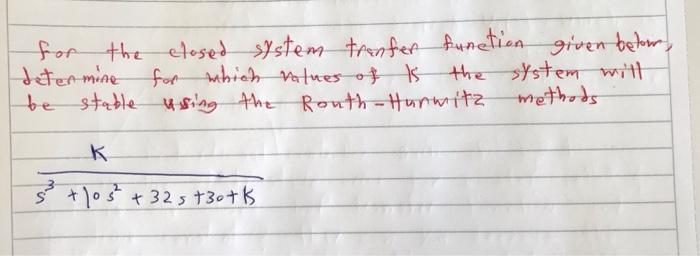 for the closed system tranfer function given below,
determine for which values of K the system will
be stable using the Routh-Hurwitz methods
K
s³ + 10s² + 32s + 30 + K